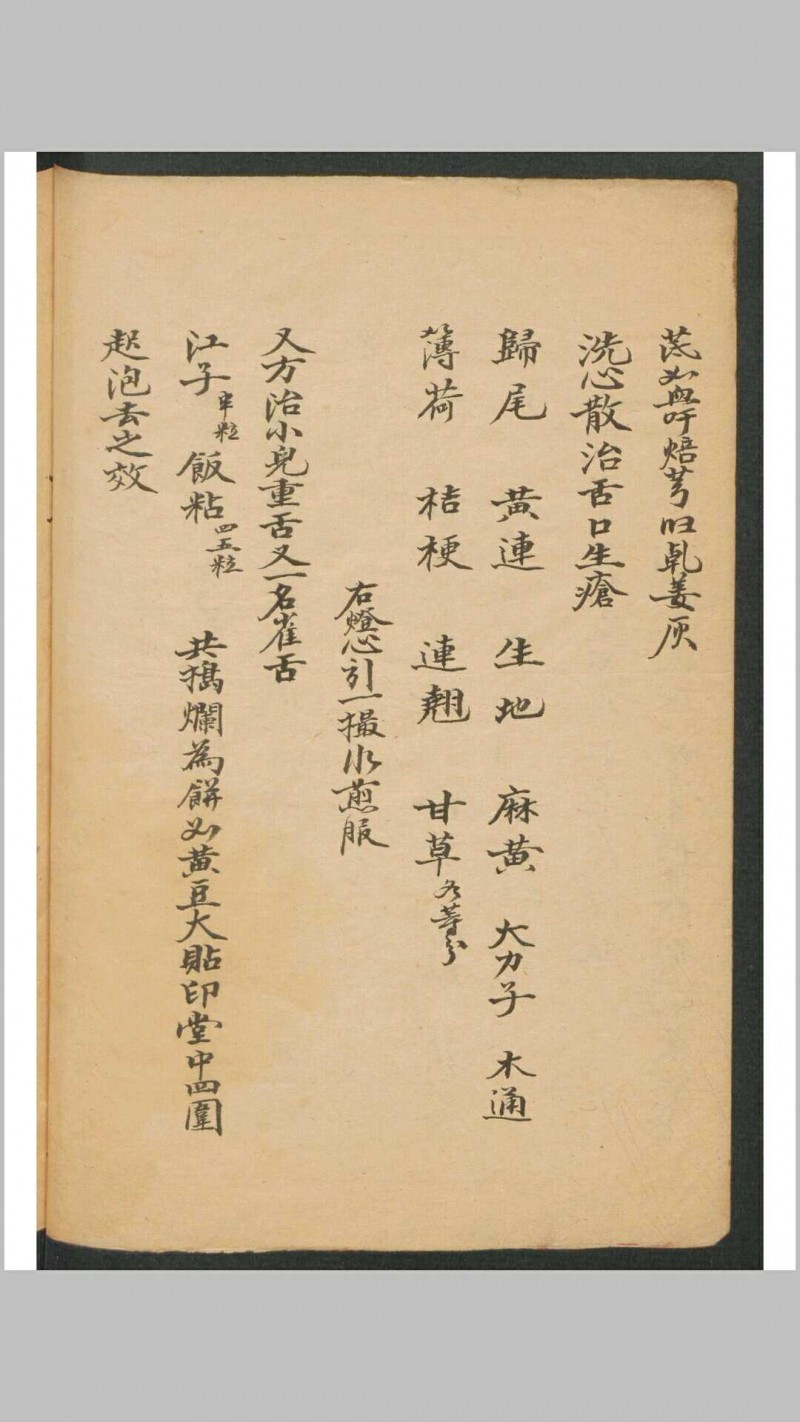 芪如無汗焙芎归乹姜灰
洗心散治舌口生瘡
歸尾 黄連 生地 麻黄 大力子 木通
薄荷 桔梗 連翹 甘草各等分
右燈心引一撮水煎服
又方治小兒重舌又一名雀舌
江子半粒 飯粘四五粒 共搗爛為餅如黄豆大貼印堂中四圍
起泡去之效